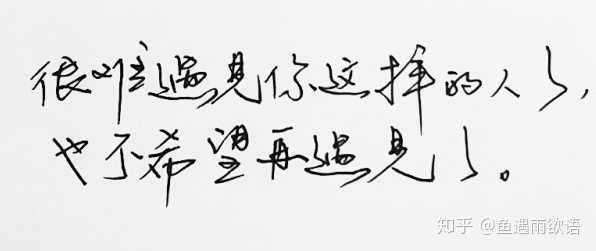 很难遇見你这样的人了，
也不希望再遇見了。
知乎 @鱼遇雨欲语